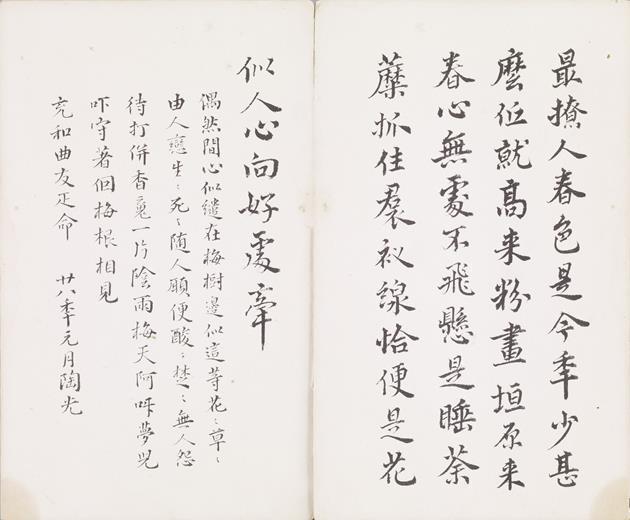 最撩人春色是今秊少甚
麼低就高来粉畫垣原来
春心無處不飛懸是睡荼
蘼抓住裠衩線恰便是花
似人心向好處牽
偶然間心似繾在梅樹邊似這等花〻草〻
由人戀生〻死〻隨人願便酸〻楚〻無人怨
待打併香魂一片陰雨梅天阿呀夢兒
吓守著個梅根相見
充和曲友疋命 廿八秊元月陶光